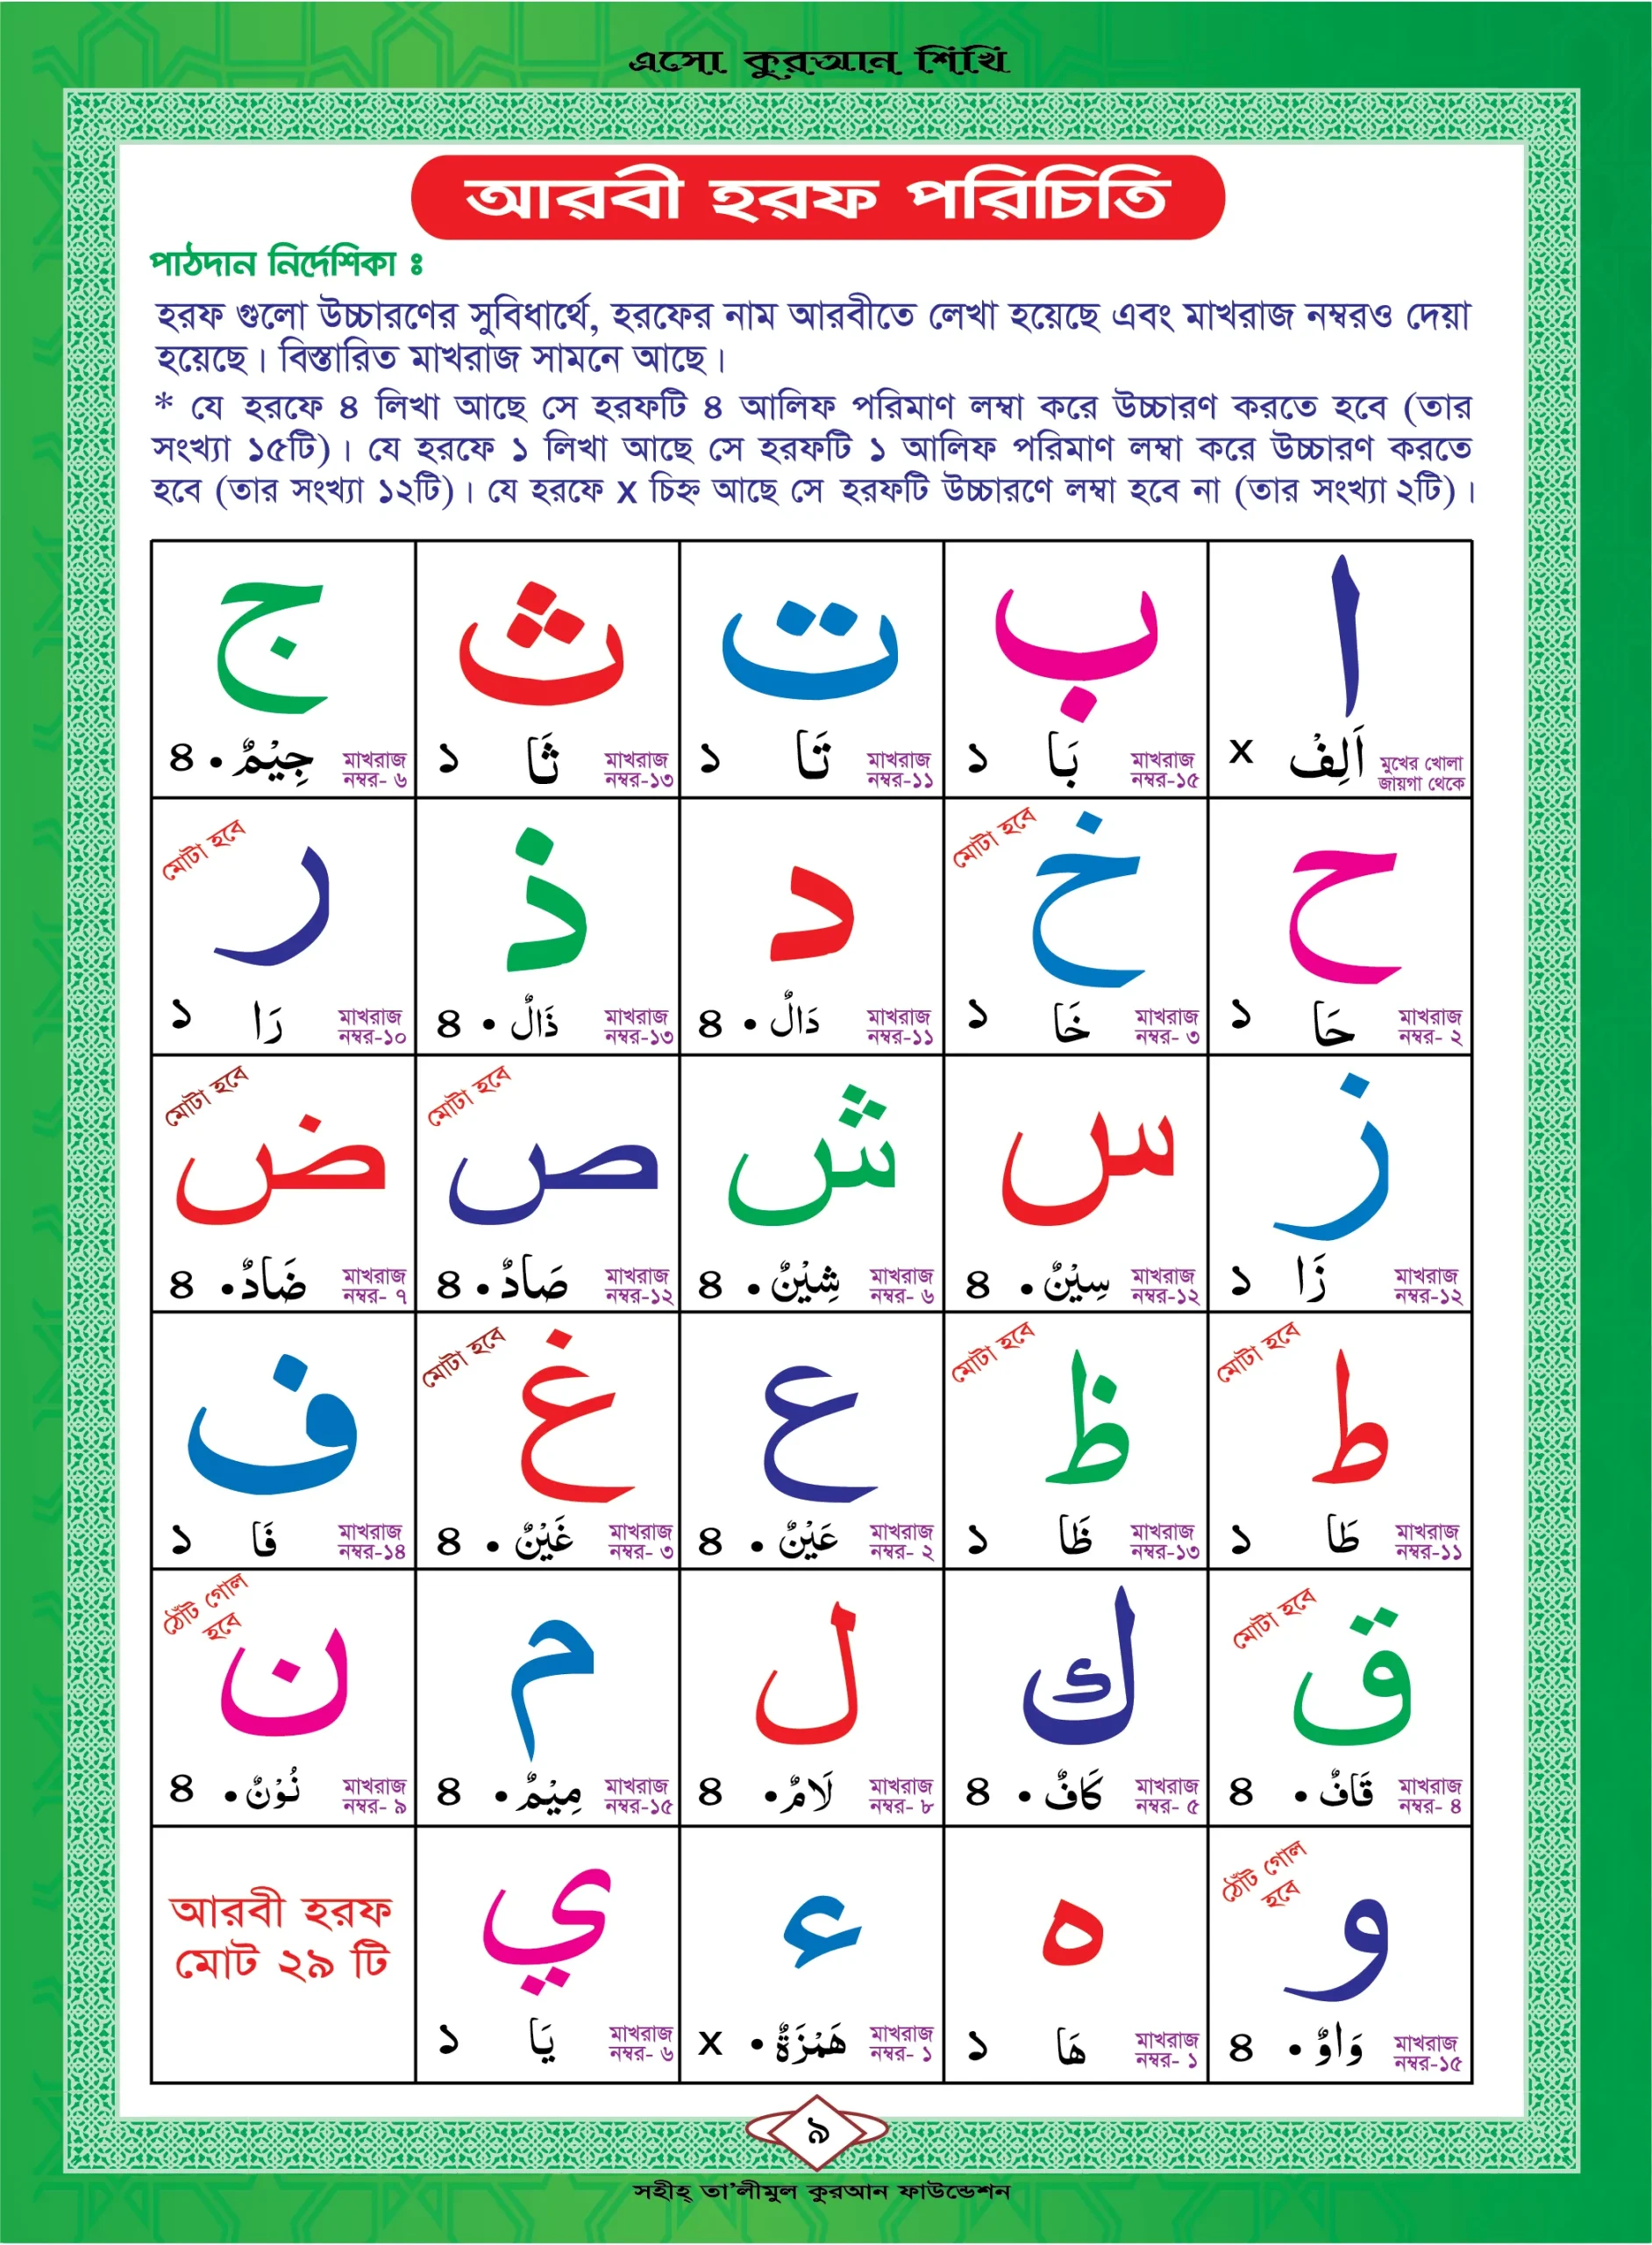 এসো কুরআন শিখি
আরবী হরফ পরিচিতি
পাঠদান নির্দেশিকা ঃ
হরফ গুলো উচ্চারণের সুবিধার্থে, হরফের নাম আরবীতে লেখা হয়েছে এবং মাখরাজ নম্বরও দেয়া
হয়েছে। বিস্তারিত মাখরাজ সামনে আছে।
* যে হরফে ৪ লিখা আছে সে হরফটি ৪ আলিফ পরিমাণ লম্বা করে উচ্চারণ করতে হবে (তার
সংখ্যা ১৫টি)। যে হরফে ১ লিখা আছে সে হরফটি ১ আলিফ পরিমাণ লম্বা করে উচ্চারণ করতে
হবে (তার সংখ্যা ১২টি)। যে হরফে x চিহ্ন আছে সে হরফটি উচ্চারণে লম্বা হবে না (তার সংখ্যা ২টি)।
ا
اَلِفْ
x
মুখের খোলা
জায়গা থেকে
ب
بَا
১
মাখরাজ
নম্বর-১৫
ت
تَا
১
মাখরাজ
নম্বর-১১
ث
ثَا
১
মাখরাজ
নম্বর-১৩
ج
جِيْمٌ •
৪
মাখরাজ
নম্বর- ৬
ح
حَا
১
মাখরাজ
নম্বর- ২
মোটা হবে
خ
خَا
১
মাখরাজ
নম্বর- ৩
د
دَالٌ •
৪
মাখরাজ
নম্বর-১১
ذ
ذَالٌ •
৪
মাখরাজ
নম্বর-১৩
মোটা হবে
ر
رَا
১
মাখরাজ
নম্বর-১০
ز
زَا
১
মাখরাজ
নম্বর-১২
س
سِيْنٌ •
৪
মাখরাজ
নম্বর-১২
ش
شِيْنٌ •
৪
মাখরাজ
নম্বর- ৬
মোটা হবে
ص
صَادٌ •
৪
মাখরাজ
নম্বর-১২
মোটা হবে
ض
ضَادٌ •
৪
মাখরাজ
নম্বর- ৭
মোটা হবে
ط
طَا
১
মাখরাজ
নম্বর-১১
মোটা হবে
ظ
ظَا
১
মাখরাজ
নম্বর-১৩
ع
عَيْنٌ •
৪
মাখরাজ
নম্বর- ২
মোটা হবে
غ
غَيْنٌ •
৪
মাখরাজ
নম্বর- ৩
ف
فَا
১
মাখরাজ
নম্বর-১৪
মোটা হবে
ق
قَافٌ •
৪
মাখরাজ
নম্বর- ৪
ك
كَافٌ •
৪
মাখরাজ
নম্বর- ৫
ل
لَامٌ •
৪
মাখরাজ
নম্বর- ৮
م
مِيْمٌ •
৪
মাখরাজ
নম্বর-১৫
ঠোঁট গোল
হবে
ن
نُوْنٌ •
৪
মাখরাজ
নম্বর- ৯
ঠোঁট গোল
হবে
و
وَاوٌ •
৪
মাখরাজ
নম্বর-১৫
ه
هَا
১
মাখরাজ
নম্বর- ১
ء
هَمْزَةٌ •
x
মাখরাজ
নম্বর- ১
ي
يَا
১
মাখরাজ
নম্বর- ৬
আরবী হরফ
মোট ২৯ টি
৯
সহীহ্ তা'লীমুল কুরআন ফাউন্ডেশন